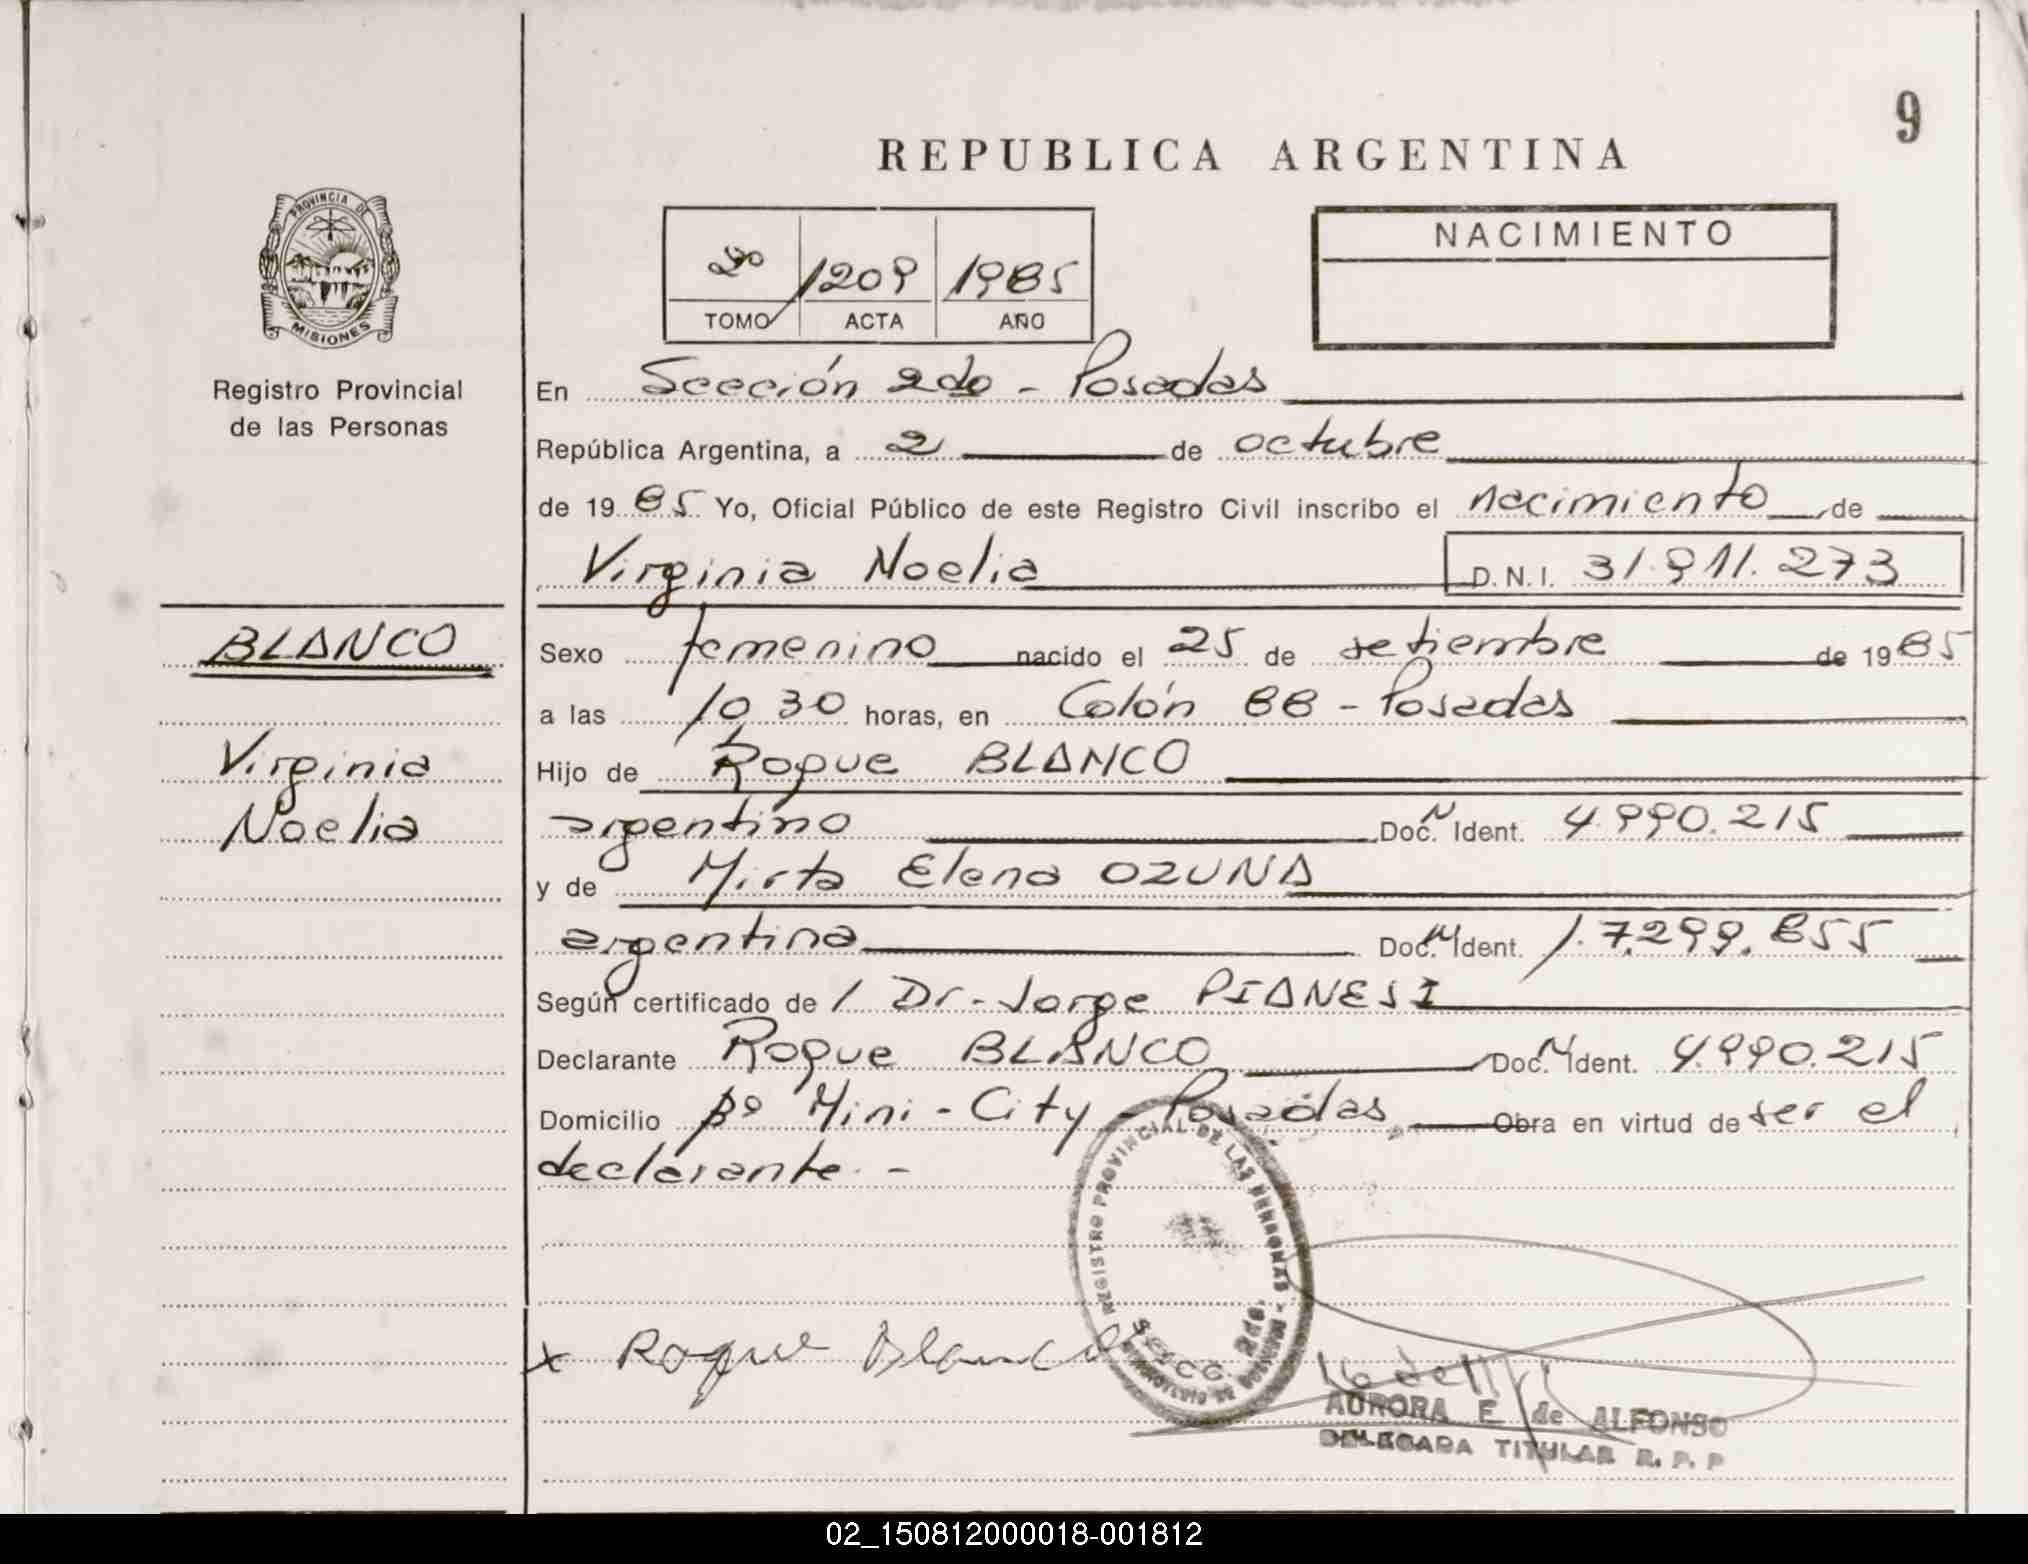 9
REPUBLICA ARGENTINA
PROVINCIA DE
MISIONES
Registro Provincial
de las Personas
2º 1209 1985
TOMO ACTA AÑO
NACIMIENTO
En Sección 2da - Posadas
República Argentina, a 2 de octubre
de 1985 Yo, Oficial Público de este Registro Civil inscribo el nacimiento de
Virginia Noelia D.N.I. 31.911.273
BLANCO
Virginia
Noelia
Sexo femenino nacido el 25 de setiembre de 1985
a las 10 30 horas, en Colón 88 - Posadas
Hijo de Roque BLANCO
argentino Doc. N Ident. 4.990.215
y de Mirta Elena OZUNA
argentina Doc. N Ident. 17.299.855
Según certificado de / Dr. Jorge PIANESI
Declarante Roque BLANCO Doc. N Ident. 4.990.215
Domicilio Bº Mini-City - Posadas Obra en virtud de ser el
declarante. -
REGISTRO PROVINCIAL DE LAS PERSONAS -
x Roque Blanco
AURORA E de ALFONSO
DELEGADA TITULAR R. P. P
02_150812000018-001812